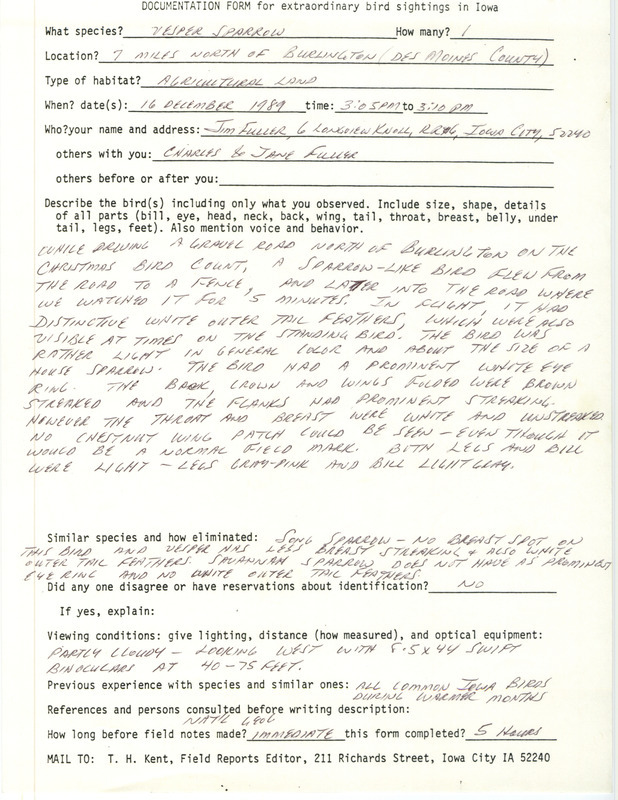 DOCUMENTATION FORM for extraordinary bird sightings in Iowa
What species? VESPER SPARROW How many? 1
Location? 7 MILES NORTH OF BURLINGTON (DES MOINES COUNTY)
Type of habitat? AGRICULTURAL LAND
When? date(s): 16 DECEMBER 1989 time: 3:05PM to 3:10 PM
Who? your name and address: JIM FULLER, 6 LONGVIEW KNOLL, RR#6, IOWA CITY, 52240
others with you: CHARLES & JANE FULLER
others before or after you:
Describe the bird(s) including only what you observed. Include size, shape, details
of all parts (bill, eye, head, neck, back, wing, tail, throat, breast, belly, under
tail, legs, feet). Also mention voice and behavior.
WHILE DRIVING A GRAVEL ROAD NORTH OF BURLINGTON ON THE
CHRISTMAS BIRD COUNT, A SPARROW-LIKE BIRD FLEW FROM
THE ROAD TO A FENCE, AND LATER INTO THE ROAD WHERE
WE WATCHED IT FOR 5 MINUTES. IN FLIGHT, IT HAD
DISTINCTIVE WHITE OUTER TAIL FEATHERS, WHICH WERE ALSO
VISIBLE AT TIMES ON THE STANDING BIRD. THE BIRD WAS
RATHER LIGHT IN GENERAL COLOR AND ABOUT THE SIZE OF A
HOUSE SPARROW. THE BIRD HAD A PROMINENT WHITE EYE
RING. THE BACK, CROWN AND WINGS FOLDED WERE BROWN
STREAKED AND THE FLANKS HAD PROMINENT STREAKING.
HOWEVER THE THROAT AND BREAST WERE WHITE AND UNSTREAKED
NO CHESTNUT WING PATCH COULD BE SEEN - EVEN THOUGH IT
WOULD BE A NORMAL FIELD MARK. BOTH LEGS AND BILL
WERE LIGHT - LEGS GRAY-PINK AND BILL LIGHT GRAY.
Similar species and how eliminated: SONG SPARROW - NO BREAST SPOT ON
THIS BIRD AND VESPER HAS LESS BREAST STREAKING & ALSO WHITE
OUTER TAIL FEATHERS. SAVANNAH SPARROW DOES NOT HAVE AS PROMINENT
EYE RING AND NO WHITE OUTER TAIL FEATHERS.
Did any one disagree or have reservations about identification? NO
If yes, explain:
Viewing conditions: give lighting, distance (how measured), and optical equipment:
PARTLY CLOUDY - LOOKING WEST WITH 8.5 X 44 SWIFT
BINOCULARS AT 40-75 FEET.
Previous experience with species and similar ones: ALL COMMON IOWA BIRDS
DURING WARMER MONTHS
References and persons consulted before writing description:
NAT'L GEOG
How long before field notes made? IMMEDIATE this form completed? 5 HOURS
MAIL TO: T. H. Kent, Field Reports Editor, 211 Richards Street, Iowa City IA 52240